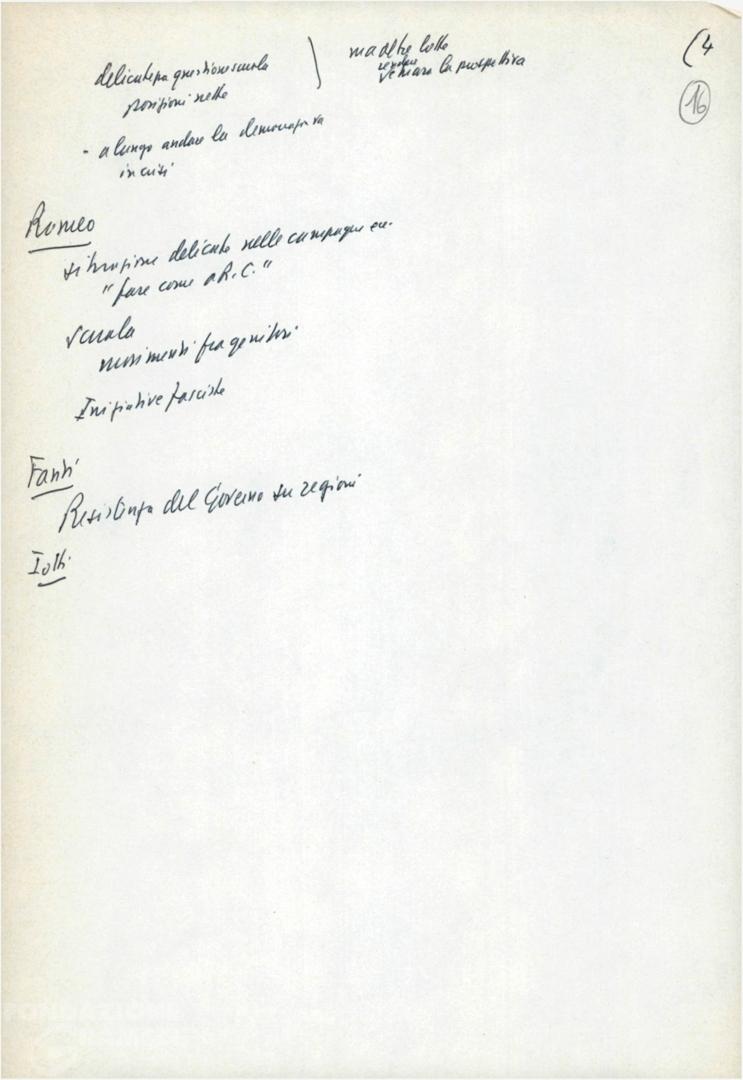 (4
16
delicatezza questione scuola
posizioni nette
ma altre lotte
rendere
la prospettiva
- a lungo andare la democrazia va
in crisi
Romeo
situazione delicata nelle campagne ecc.
"fare come a R.C."
scuola
movimenti fra genitori
Iniziative fasciste
Fanti
Resistenza del Governo su regioni
Iotti
FONDAZIONE
GRAMSCI